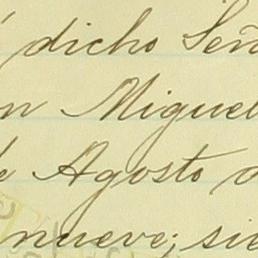 dicho Señ
n Miguel
e Agosto d
nueve; sie